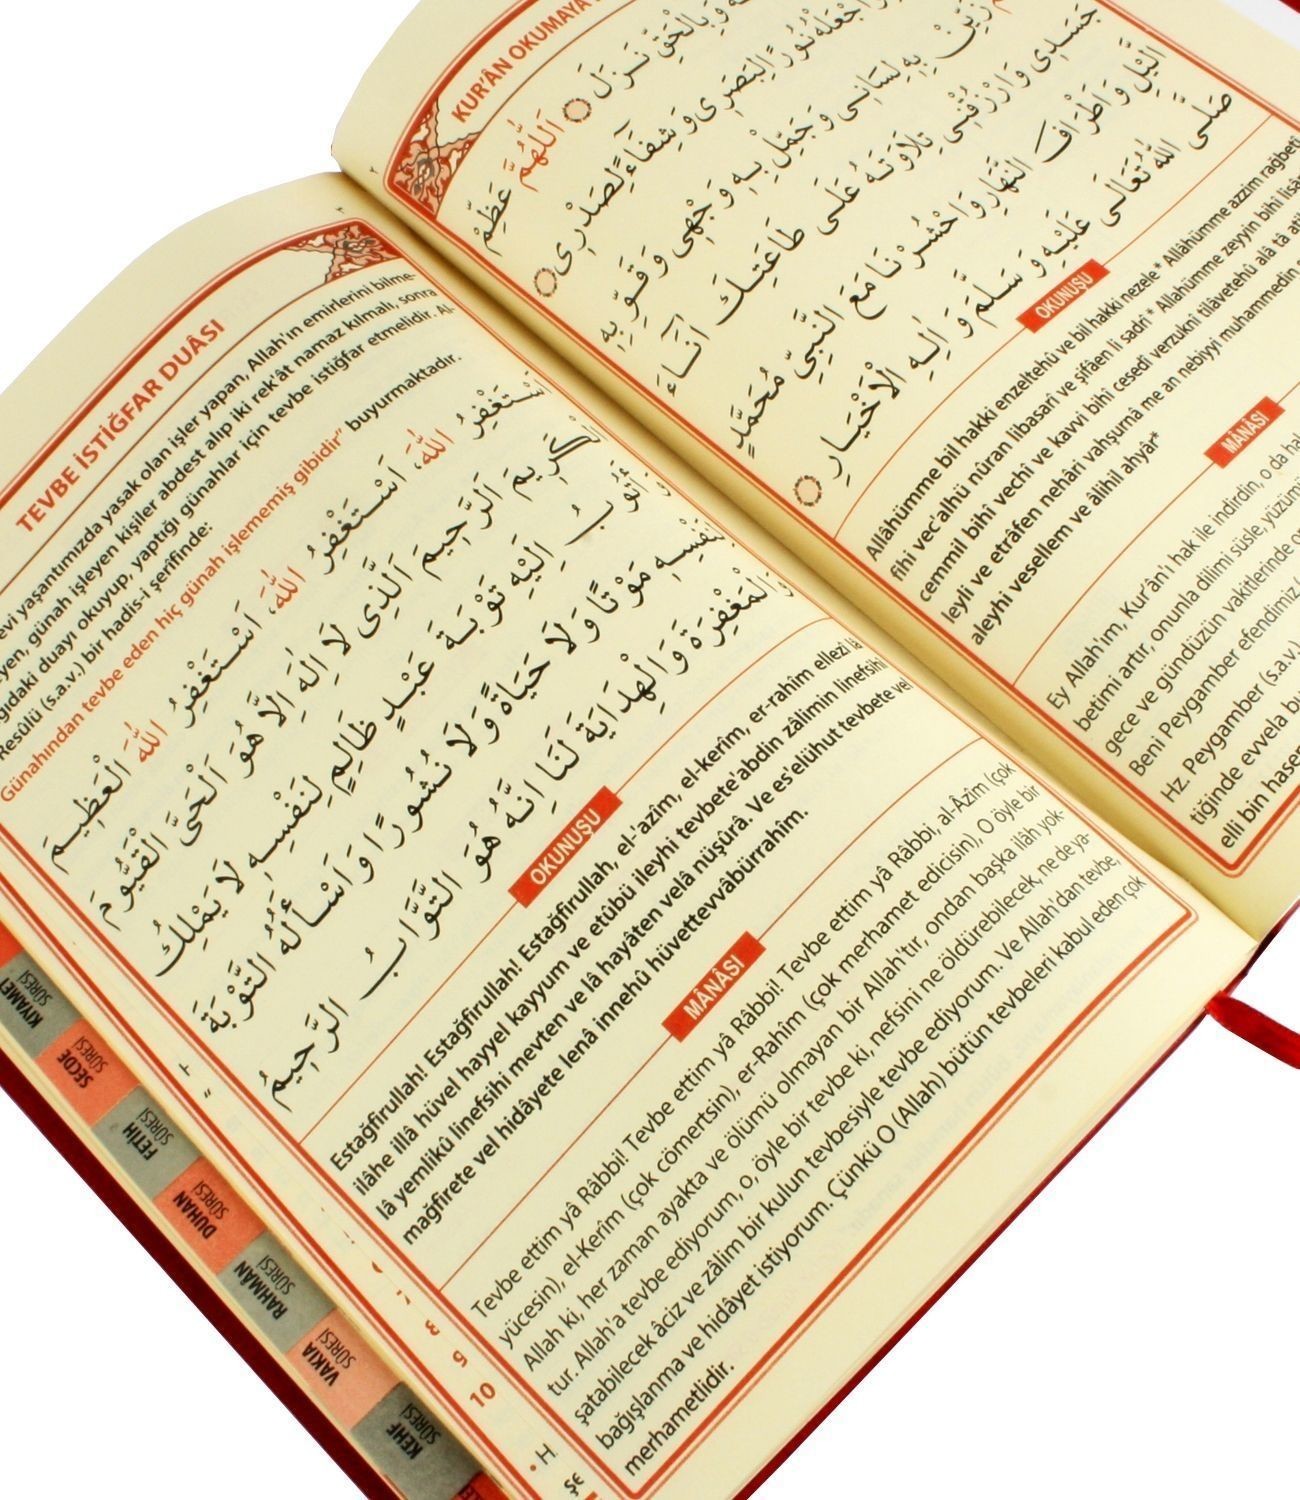 TEVBE İSTİĞFAR DUÂSI
evi yaşantımızda yasak olan işler yapan, Allah'ın emirlerini bilme-
yen, günah işleyen kişiler abdest alıp iki rek'ât namaz kılmalı, sonra
ğıdaki duayı okuyup, yaptığı günahlar için tevbe istiğfar etmelidir. Al-
Resûlü (s.a.v.) bir hadis-i şerifinde:
Günahından tevbe eden hiç günah işlememiş gibidir" buyurmaktadır.
اَسْتَغْفِرُ اللّٰهَ، اَسْتَغْفِرُ اللّٰهَ، اَسْتَغْفِرُ اللّٰهَ الْعَظٖيمَ
الْكَرٖيمَ اَلرَّحٖيمَ اَلَّذٖى لَا اِلٰهَ اِلَّا هُوَ اَلْحَىَّ الْقَيُّومَ
وَاَتُوبُ اِلَيْهِ تَوْبَةَ عَبْدٍ ظَالِمٍ لِنَفْسِهٖ لَا يَمْلِكُ
لِنَفْسِهٖ مَوْتًا وَلَا حَيَاةً وَلَا نُشُورًا وَاَسْأَلُهُ التَّوْبَةَ
وَالْمَغْفِرَةَ وَالْهِدَايَةَ لَنَا اِنَّهُ هُوَ التَّوَّابُ الرَّحٖيمُ
OKUNUŞU
Estağfirullah! Estağfirullah! Estağfirullah, el-'azîm, el-kerîm, er-rahîm ellezî lâ
ilâhe illâ hüvel hayyel kayyum ve etûbü ileyhi tevbete'abdin zâlimin linefsihî
lâ yemlikû linefsihi mevten ve lâ hayâten velâ nüşûrâ. Ve es'elühut tevbete vel
mağfirete vel hidâyete lenâ innehû hüvettevvâbürrahîm.
MÂNÂSI
Tevbe ettim yâ Râbbi! Tevbe ettim yâ Râbbi! Tevbe ettim yâ Râbbi, al-Âzîm (çok
yücesin), el-Kerîm (çok cömertsin), er-Rahîm (çok merhamet edicisin), O öyle bir
Allah ki, her zaman ayakta ve ölümü olmayan bir Allah'tır, ondan başka ilâh yok-
tur. Allah'a tevbe ediyorum, o, öyle bir tevbe ki, nefsini ne öldürebilecek, ne de ya-
şatabilecek âciz ve zâlim bir kulun tevbesiyle tevbe ediyorum. Ve Allah'dan tevbe,
bağışlanma ve hidâyet istiyorum. Çünkü O (Allah) bütün tevbeleri kabul eden çok
merhametlidir.
KIYAMET
SÛRESİ
SECDE
SÛRESİ
FETİH
SÛRESİ
DUHAN
SÛRESİ
RAHMÂN
SÛRESİ
VAKIA
SÛRESİ
KEHF
SÛRESİ
9
10
• H
şe
٢
KUR'ÂN OKUMAYA
اَللّٰهُمَّ عَظِّمْ
وَبِالْحَقِّ نَزَلَ
وَاجْعَلْهُ نُورًا لِبَصَرٖى وَشِفَاءً لِصَدْرٖى
زَيِّنْ بِهٖ لِسَانٖى وَجَمِّلْ بِهٖ وَجْهٖى وَقَوِّ بِهٖ
جَسَدٖى وَارْزُقْنٖى تِلَاوَتَهُ عَلٰى طَاعَتِكَ اٰنَاءَ
الَّيْلِ وَاَطْرَافَ النَّهَارِ وَاحْشُرْنَا مَعَ النَّبِىِّ مُحَمَّدٍ
صَلَّى اللّٰهُ تَعَالٰى عَلَيْهِ وَسَلَّمَ وَاٰلِهِ الْاَخْيَارِ
OKUNUŞU
Allâhümme bil hakki enzeltehü ve bil hakki nezele* Allâhümme azzim rağbetî
fîhi vec'alhü nûran libasarî ve şifâen li sadrî* Allahümme zeyyin bihî lisânî
cemmil bihî vechî ve kavvi bihî cesedî verzuknî tilâvetehü alâ tâ
leyli ve etrâfen nehâri vahşurnâ me an nebiyyi muhammedin
aleyhi vesellem ve âlihil ahyâr*
MÂNÂSI
Ey Allah'ım, Kur'ân'ı hak ile indirdin, o da
betimi artır, onunla dilimi süsle, yüzümü
gece ve gündüzün vakitlerinde
Beni Peygamber efendimiz
Hz. Peygamber (s.a.v.)
tiğinde evvela
elli bin